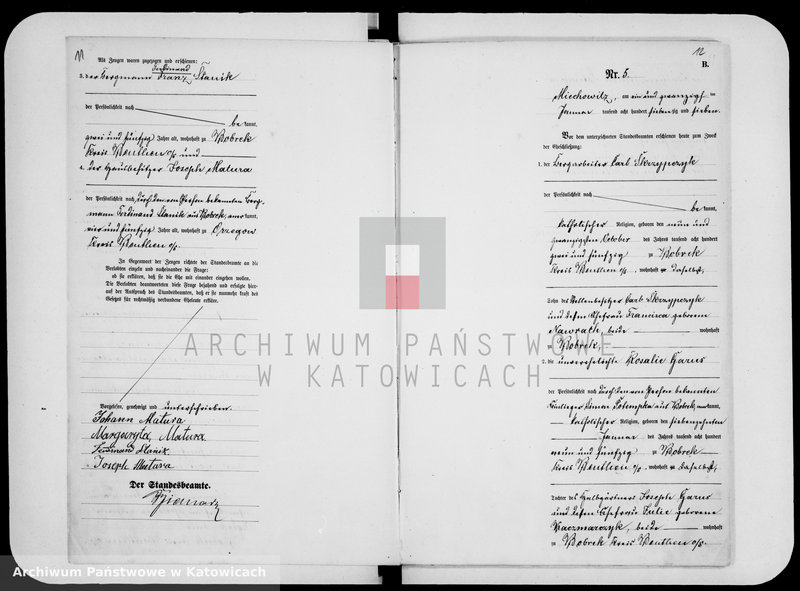 11
Als Zeugen waren zugezogen und erschienen:
Ferdinand
3. der Bergmann Franz Stanik
der Persönlichkeit nach
be kannt,
zwei und fünfzig Jahre alt, wohnhaft zu Bobrek
Kreis Beuthen O/S. und
4. der Hausbesitzer Joseph Matura
der Persönlichkeit nach durch den von Person bekannten Berg-
mann Ferdinand Stanik aus Bobrek, aner kannt,
vier und fünfzig Jahre alt, wohnhaft zu Orzegow
Kreis Beuthen O/S.
In Gegenwart der Zeugen richtete der Standesbeamte an die
Verlobten einzeln und nacheinander die Frage:
ob sie erklären, daß sie die Ehe mit einander eingehen wollen.
Die Verlobten beantworteten diese Frage bejahend und erfolgte hier-
auf der Ausspruch des Standesbeamten, daß er sie nunmehr kraft des
Gesetzes für rechtmäßig verbundene Eheleute erkläre.
Vorgelesen, genehmigt und unterschrieben.
Johann Matura
Margaryta Matura
Ferdinand Stanik
Joseph Matura
Der Standesbeamte.
12
B.
Nr. 5.
Miechowitz, am ein und zwanzigsten
Januar tausend acht hundert siebenzig und sieben.
Vor dem unterzeichneten Standesbeamten erschienen heute zum Zweck
der Eheschließung:
1. der Bergarbeiter Carl Skrzypczyk
der Persönlichkeit nach
be kannt,
katholischer Religion, geboren den neun und
zwanzigsten October des Jahres tausend acht hundert
zwei und fünfzig zu Bobrek
Kreis Beuthen O/S., wohnhaft zu daselbst,
Sohn des Stellenbesitzer Carl Skrzypczyk
und dessen Ehefrau Francisca geborene
Nawrath, beide wohnhaft
zu Bobrek,
2. die unverehelichte Rosalie Garus
der Persönlichkeit nach durch den von Person bekannten
Einlieger Simon Potempka aus Bobrek, aner kannt,
katholischer Religion, geboren den siebenzehnten
Januar des Jahres tausend acht hundert
neun und fünfzig zu Bobrek
Kreis Beuthen O/S., wohnhaft zu daselbst,
Tochter des Halbgärtners Joseph Garus
und dessen Ehefrau Julie geborene
Kaczmarczyk, beide wohnhaft
zu Bobrek Kreis Beuthen O/S.
ARCHIWUM PAŃSTWOWE
W KATOWICACH
Archiwum Państwowe w Katowicach